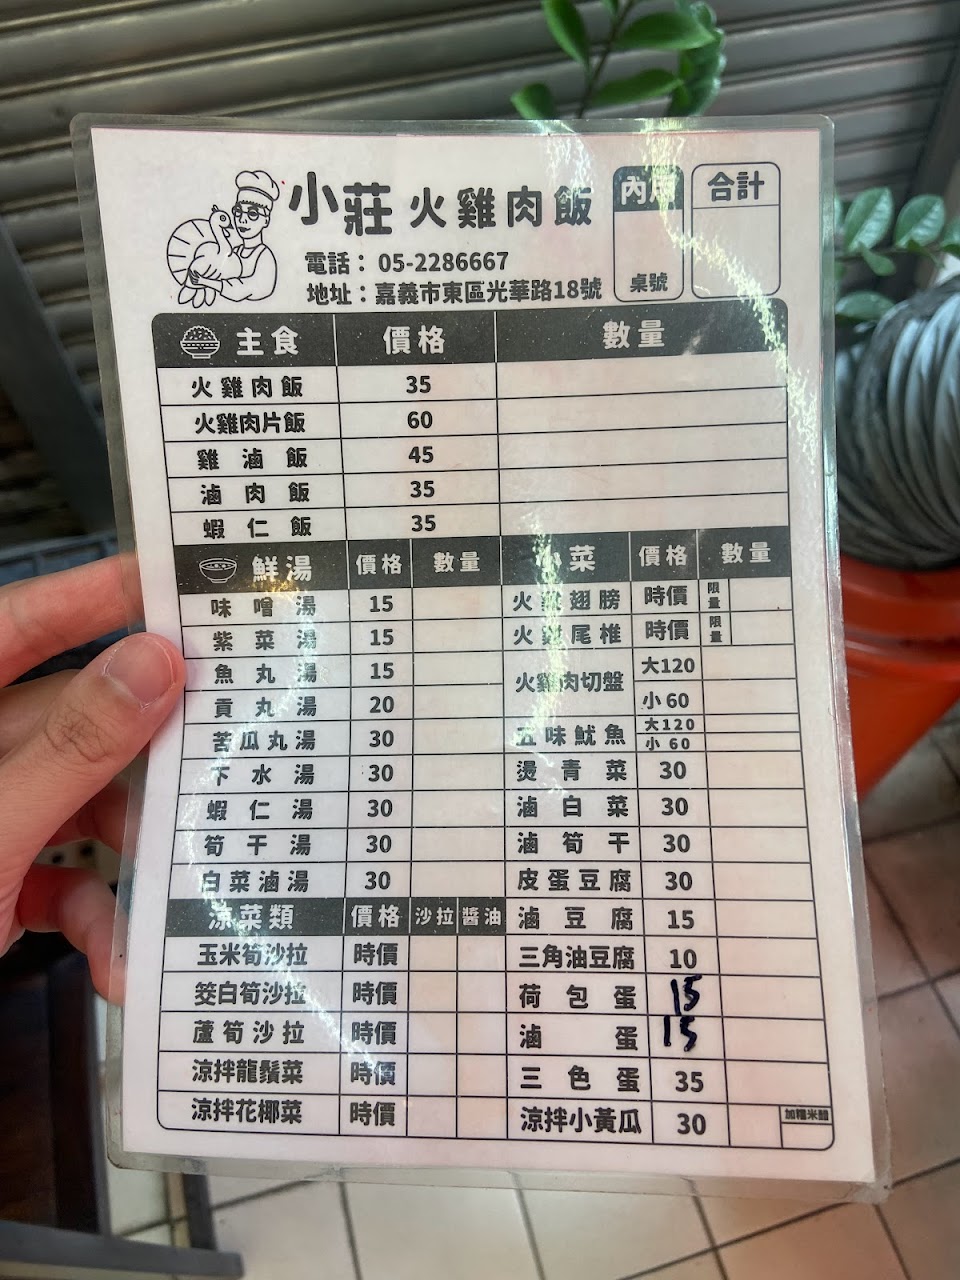 小莊火雞肉飯
內用
合計
電話：05-2286667
地址：嘉義市東區光華路18號
桌號
主食 價格 數量
火雞肉飯 35
火雞肉片飯 60
雞滷飯 45
滷肉飯 35
蝦仁飯 35
鮮湯 價格 數量
味噌湯 15
紫菜湯 15
魚丸湯 15
貢丸湯 20
苦瓜丸湯 30
下水湯 30
蝦仁湯 30
筍干湯 30
白菜滷湯 30
涼菜類 價格 沙拉 醬油
玉米筍沙拉 時價
筊白筍沙拉 時價
蘆筍沙拉 時價
涼拌龍鬚菜 時價
涼拌花椰菜 時價
小菜 價格 數量
火雞翅膀 時價 限量
火雞尾椎 時價 限量
火雞肉切盤 大120
小60
五味魷魚 大120
小60
燙青菜 30
滷白菜 30
滷筍干 30
皮蛋豆腐 30
滷豆腐 15
三角油豆腐 10
荷包蛋 15
滷蛋 15
三色蛋 35
涼拌小黃瓜 30 加糯米醋